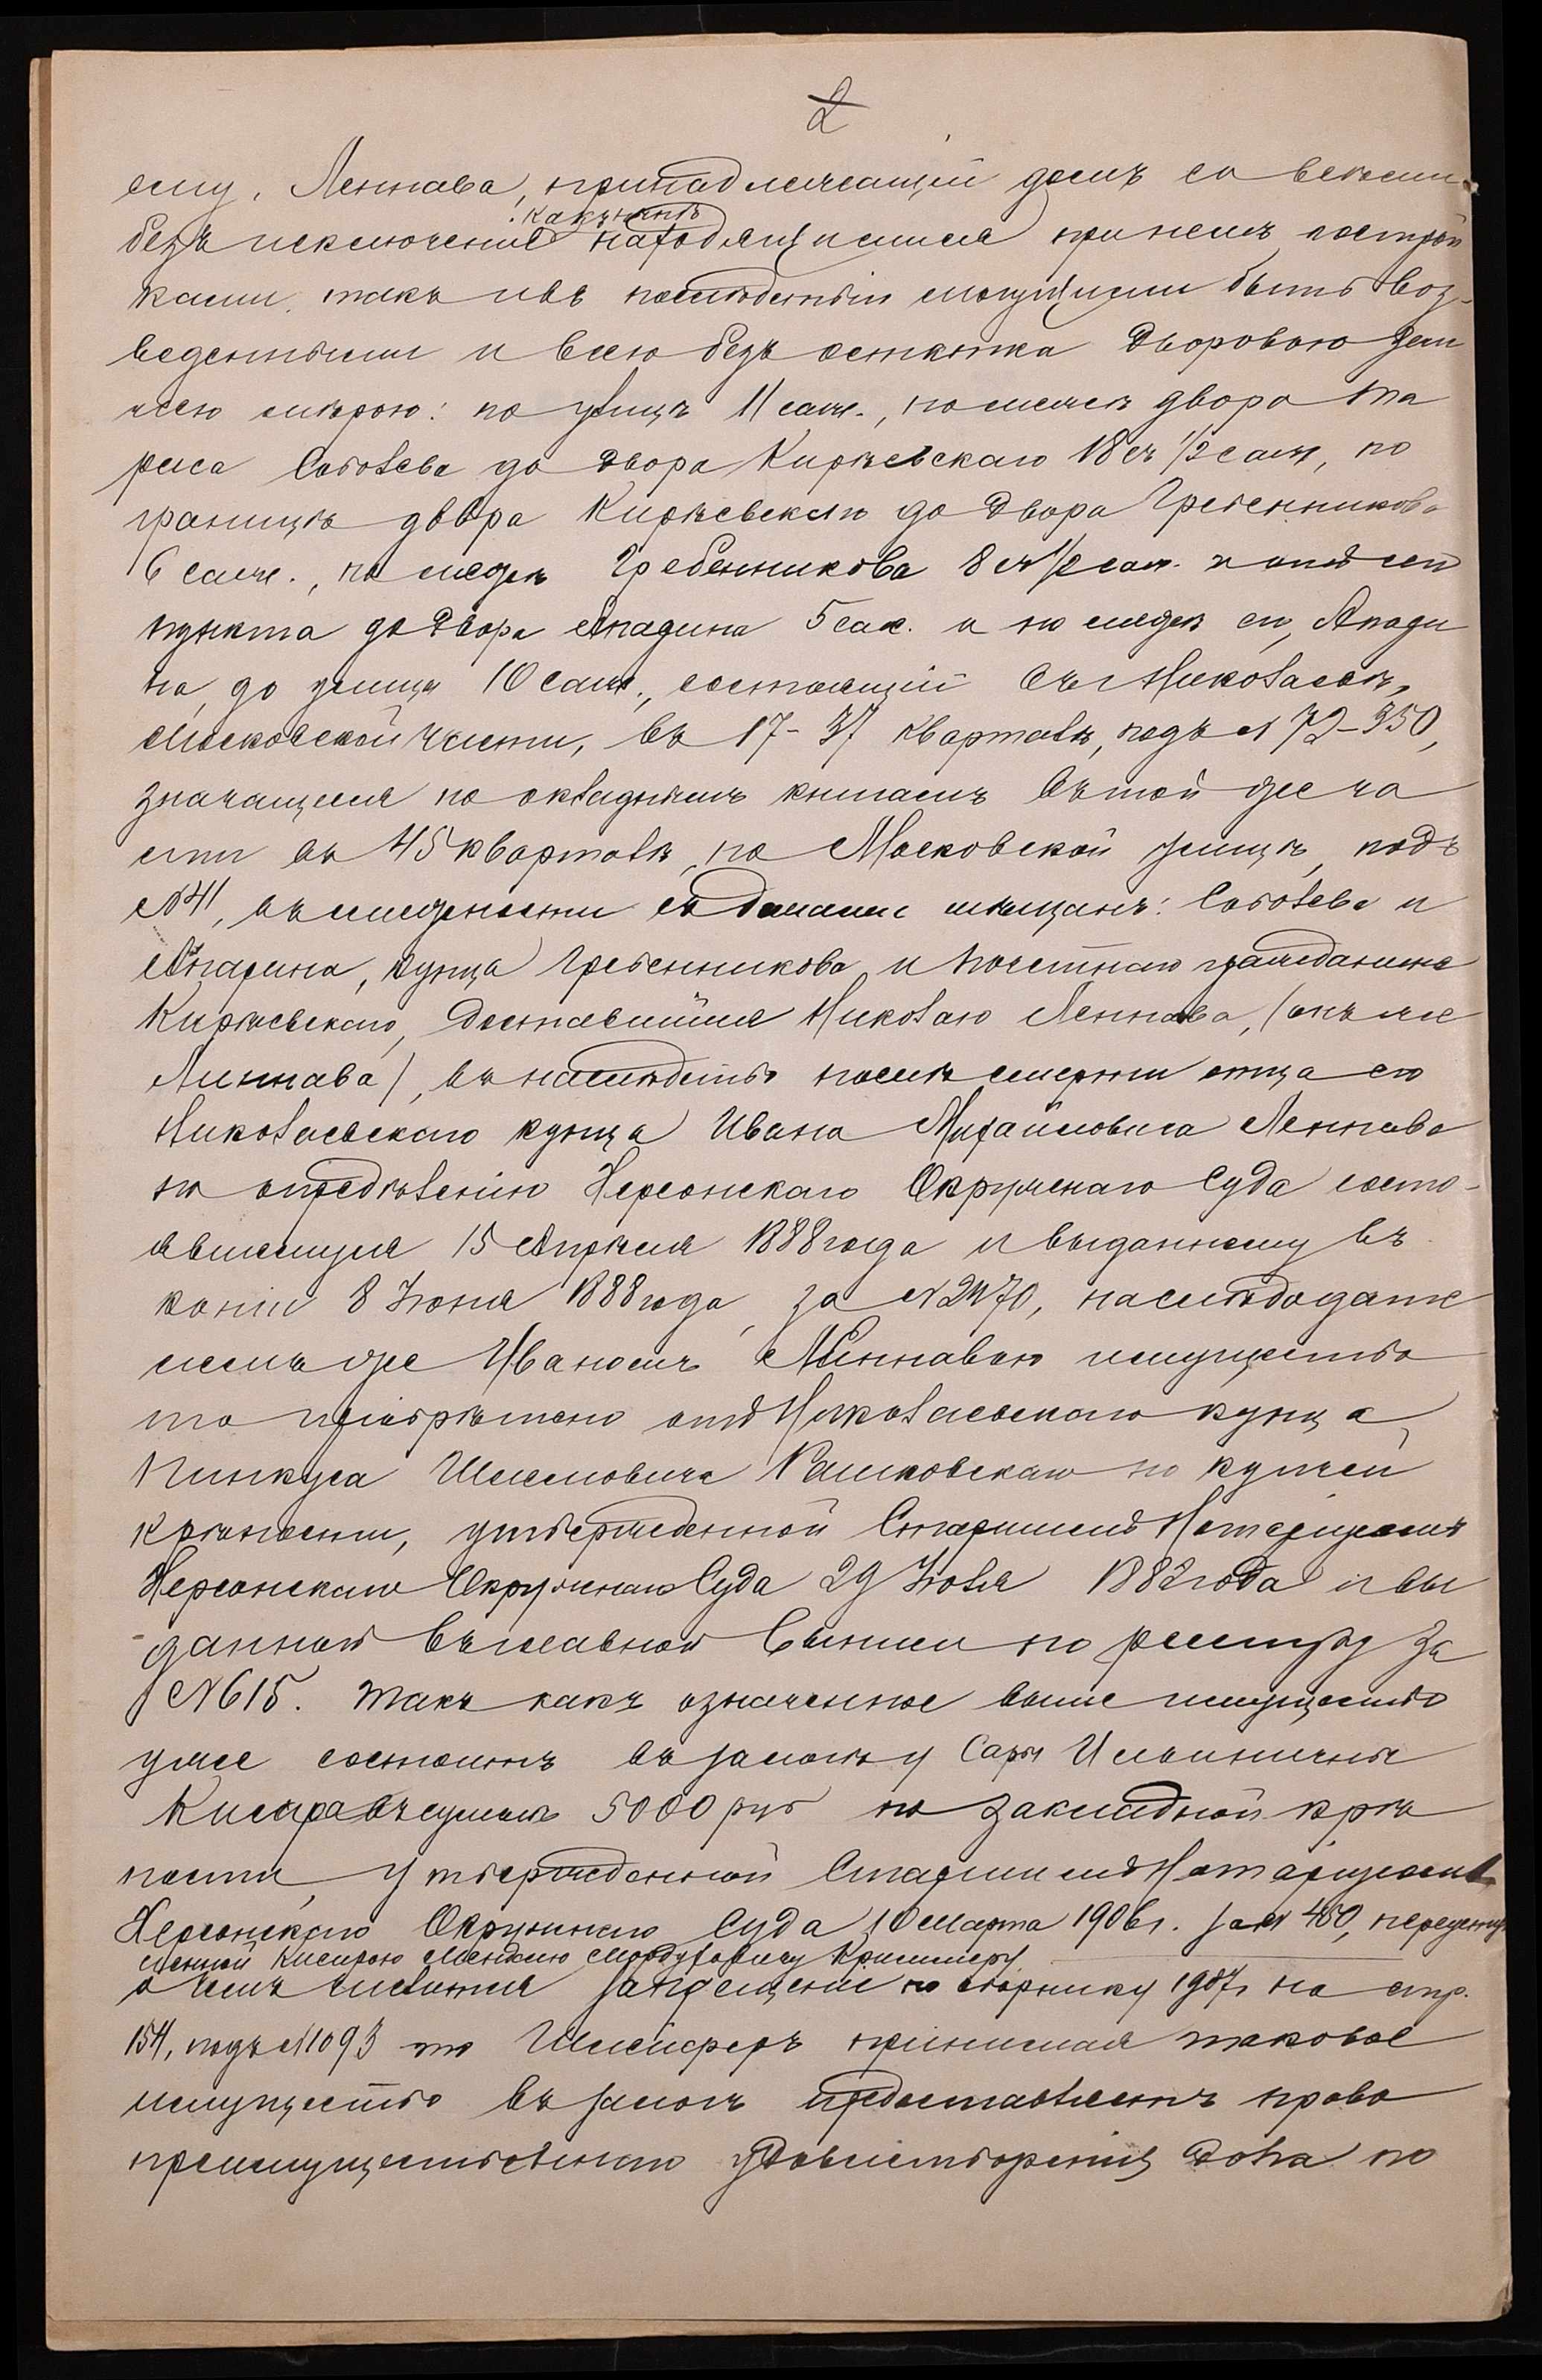 2
ему, Леннава, принадлежащій домъ со всѣми
какъ нынѣ
безъ исключенія находящимися при немъ построй
ками, такъ и въ послѣдствіи могущими быть воз-
веденными и всею безъ остатка дворовою зем
лею мѣрою: по улицѣ 11 саж., по межѣ двора
Соболева до двора Кирѣевскаго 18 съ 1/2 саж, по
границѣ двора Кирѣевскаго до двора Гребенникова
6 саж., по межѣ Гребенникова 8 съ 1/2 саж. и отъ сего
пункта до двора Анадина 5 саж. и по межѣ его, Анади
на, до улицы 10 саж., состоящій въ г. Николаевѣ,
Московской части, въ 17-37 кварталѣ, подъ № 72-350,
значащемся по окладнымъ книгамъ въ той же ча
сти въ 45 кварталѣ, по Московской улицѣ, подъ
№ 41, въ смежности съ домами мѣщанъ: Соболева и
Анадина, купца Гребенникова и почетнаго гражданина
Кирѣевскаго, доставшійся Николаю Леннава, (онъ же
Линнава), въ наслѣдство послѣ смерти отца его
Николаевскаго купца Ивана Михайловича Леннава
по опредѣленію Херсонскаго Окружнаго Суда состо-
явшемуся 15 Апрѣля 1888 года и выданному въ
копіи 8 Іюня 1888 года, за № 2470, наслѣдодате
лемъ же Иваномъ Леннавою имущество
то пріобрѣтено отъ Николаевскаго купца
Пинкуса Шлемовича Рашковскаго по купчей
крѣпости, утвержденной Старшимъ Нотаріусомъ
Херсонскаго Окружнаго Суда 29 Іюля 1882 года и вы
данной въ главной выписи по реестру за
№ 615. Такъ какъ означенное выше имущество
уже состоитъ въ залогѣ у Сары Ильиничны
въ суммѣ 5000 руб по закладной крѣ
пости, утвержденной Старшимъ Нотаріусомъ
Херсонскаго Окружнаго Суда 10 Марта 1906 г. за № 450,
о чемъ имѣется запрещеніе по сборнику 1907 г. на стр.
154, подъ № 1093 то Шлейферъ принимая таковое
имущество въ залогъ предоставляетъ право
преимущественнаго удовлетворенія долга по